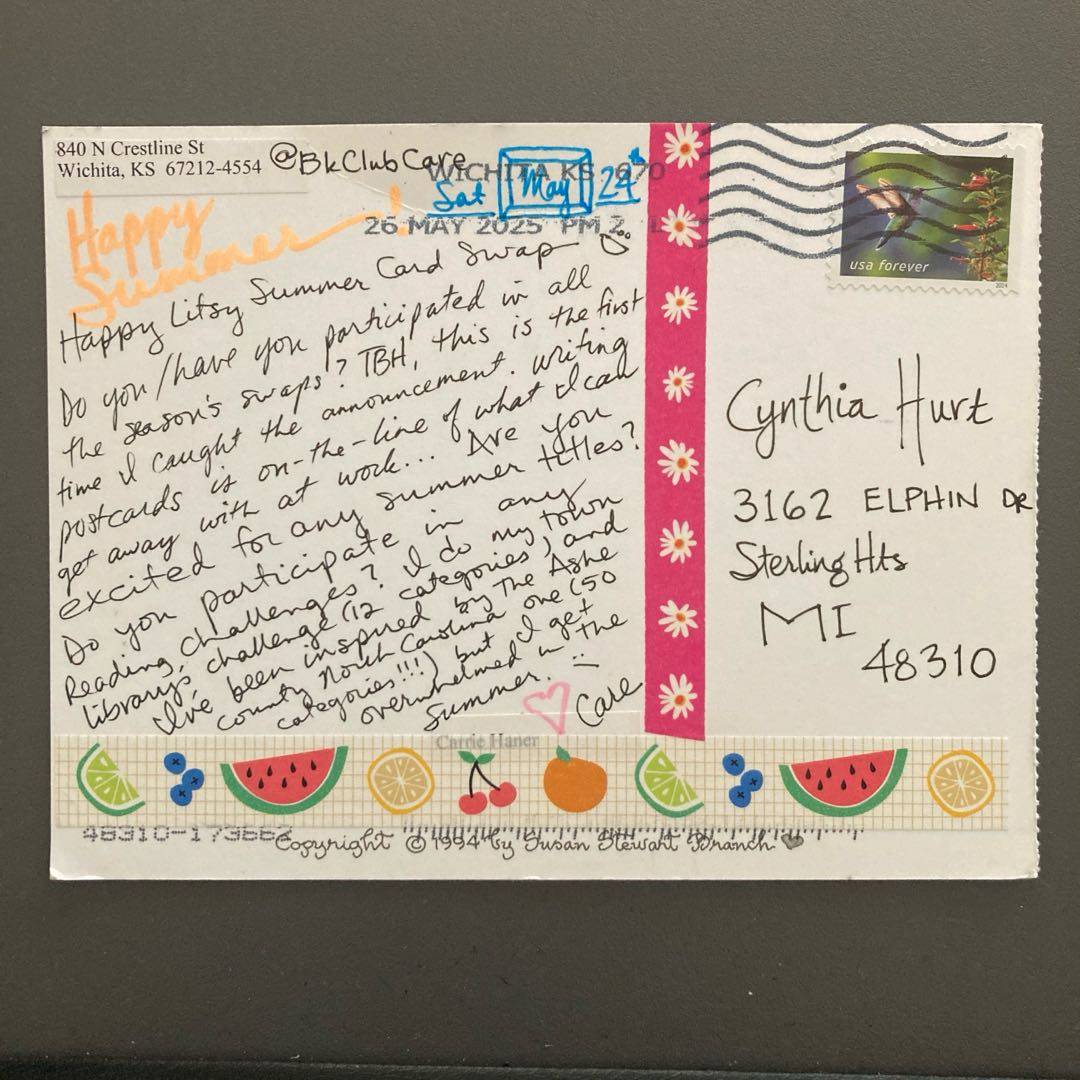 840 N Crestline St
Wichita, KS 67212-4554
@BkClubCare
WICHITA KS 670
Sat May 24
26 MAY 2025 PM 2 L
usa forever
Happy
Summer!
Happy Litsy Summer Card Swap
Do you/have you participated in all
the season's swaps? TBH, this is the first
time I caught the announcement. Writing
postcards is on-the-line of what I can
get away with at work... Are you
excited for any summer titles?
Do you participate in any
Reading Challenges? I do my town
library's challenge (12 categories) and
I've been inspired by The Ashe
County North Carolina one (50
categories!!!) but I get
overwhelmed in the
summer.
Care
Cynthia Hurt
3162 ELPHIN DR
Sterling Hts
MI
48310
Carrie Haner
48310-173662
Copyright © 1994 by Susan Stewart Branch